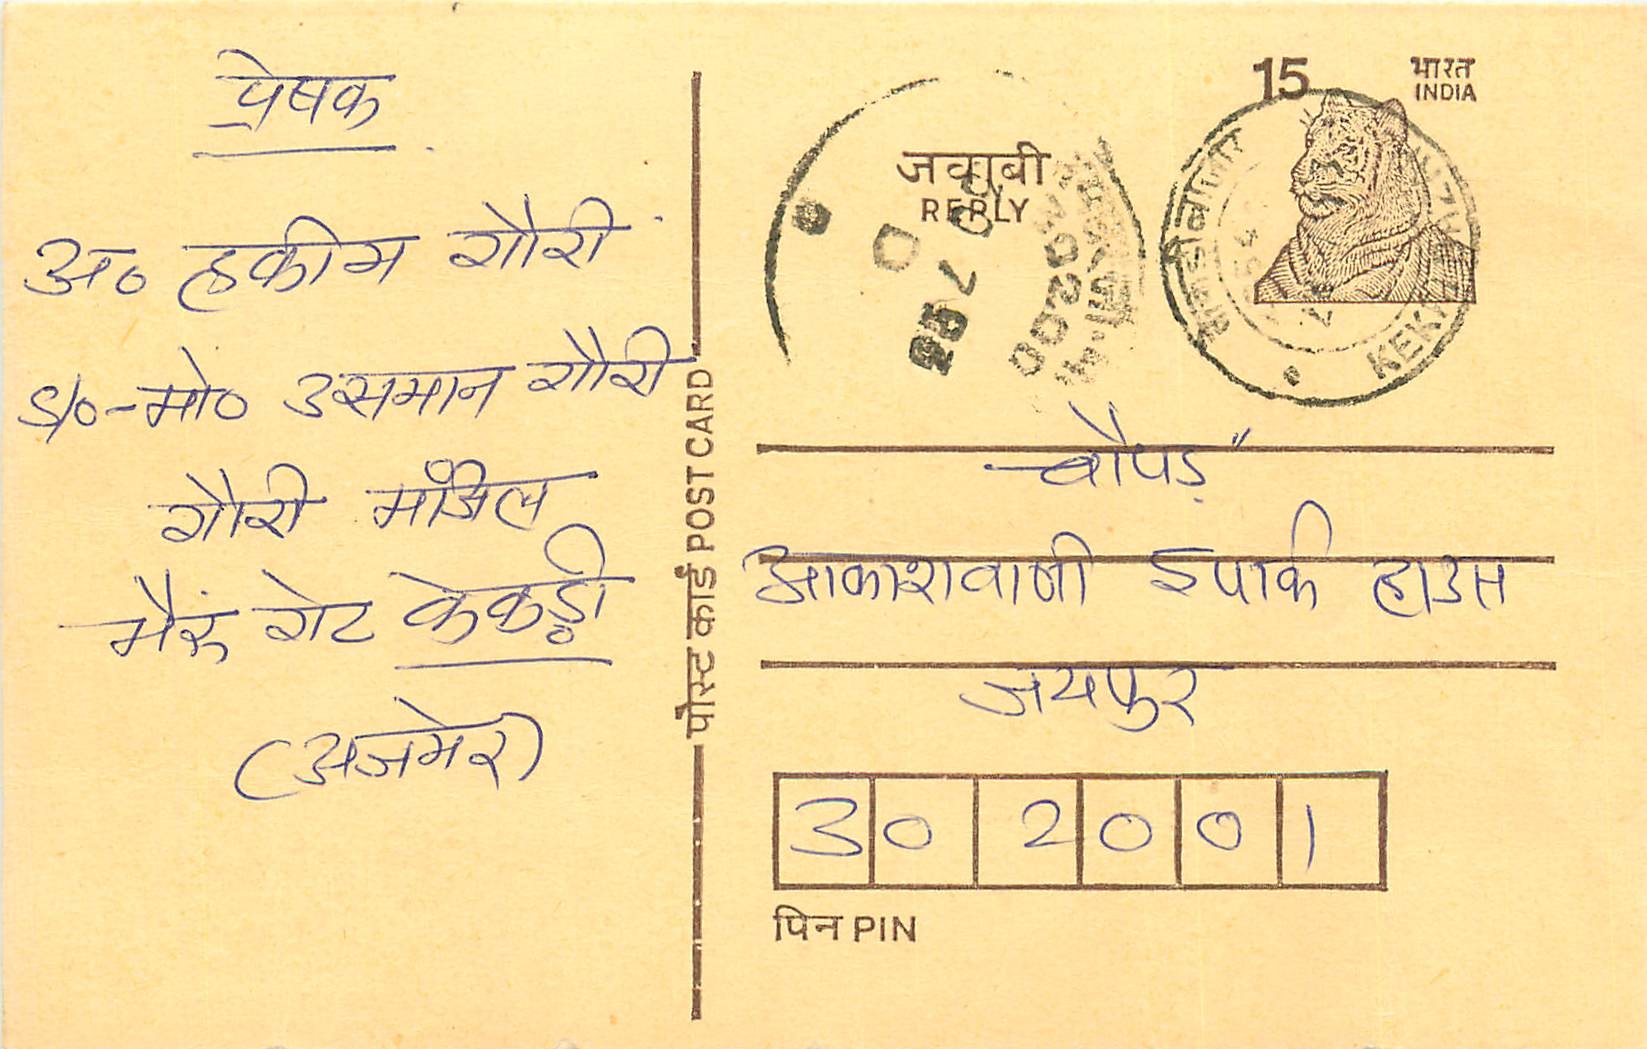 प्रेषक
अ० हकीम गौरी
S/o-मो० उसमान गौरी
गौरी मंजिल
भैरू गेट केकड़ी
(अजमेर)
पोस्ट कार्ड POST CARD
जवाबी
REPLY
15
भारत
INDIA
चौपड़"
आकाशवाणी ईपार्क हाउस
जयपुर
302001
पिन PIN